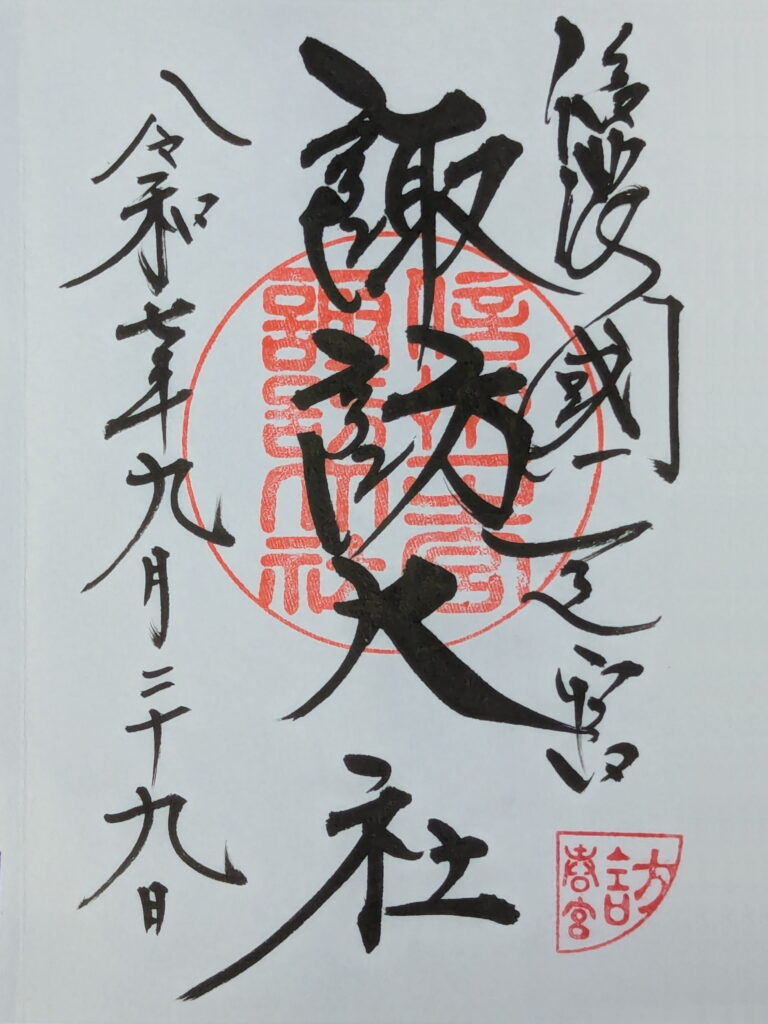 信濃國一之宮
諏訪大社
令和七年九月二十九日
信州一宮
諏訪大社
訪
春宮